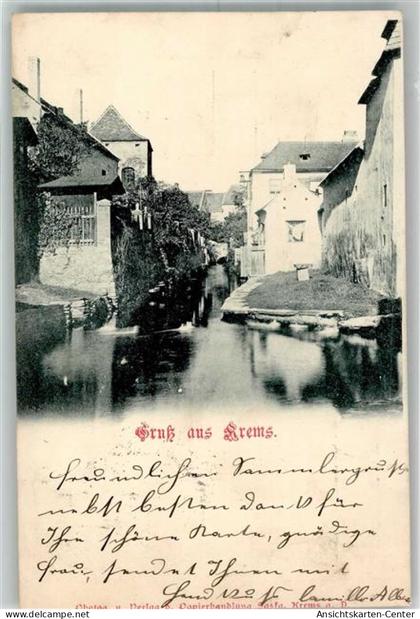 Gruß aus Krems.
Freundlichen Sammlergruss
nebst besten Dank für
Ihre schöne Karte, gnädige
Frau, sendet Ihnen mit
Handkuss Camillo Albr
Photog. u. Verlag d. Papierhandlung Krems a. D.
www.oldthing.de
Ansichtskarten-Center